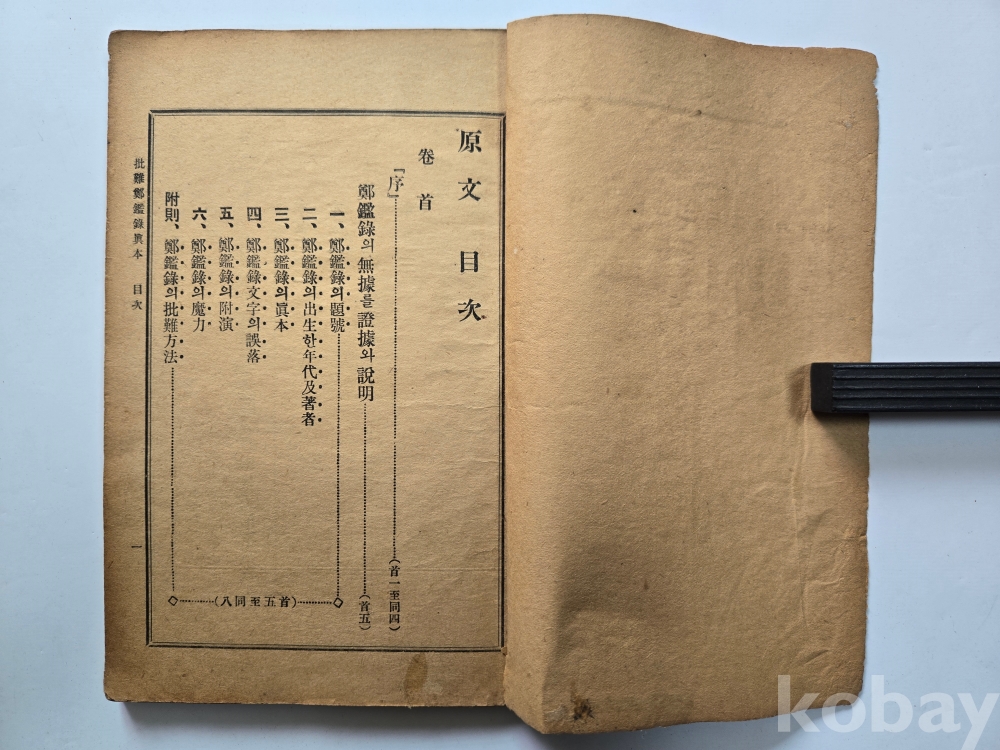 原文目次
卷首
「序」(首一至同四)
鄭鑑錄의無據를證據와說明(首五)
一、鄭鑑錄의題號
二、鄭鑑錄의出生한年代及著者
三、鄭鑑錄의眞本
四、鄭鑑錄文字의誤落
五、鄭鑑錄의附演
六、鄭鑑錄의魔力
附則、鄭鑑錄의批難方法
(首五至同八)
批難鄭鑑錄眞本 目次 一
kobay